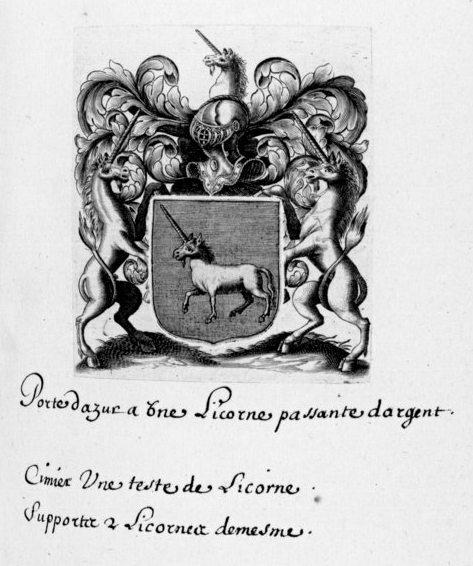 Porte dazur a Vne Licorne passante dargent.
Cimier Vne teste de Licorne.
Supportz 2 Licornes demesme.